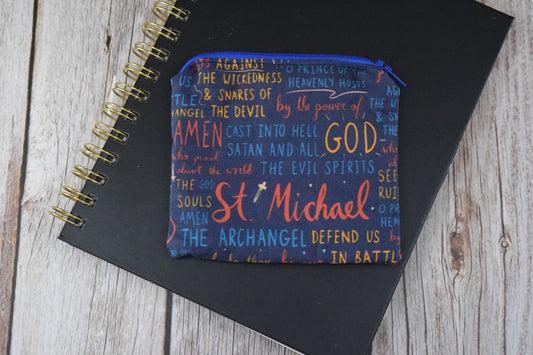 TS AGAINST
US THE WICKEDNESS
& SNARES OF
THE DEVIL
O PRINCE OF THE
HEAVENLY HOSTS
by the power of
AMEN
CAST INTO HELL
SATAN AND ALL
THE EVIL SPIRITS
GOD
who prowl
about the world
THE GOD
SOULS
AMEN
St. Michael
THE ARCHANGEL
DEFEND US
IN BATTL
SEE
RUI
O PRI
HEAV
by